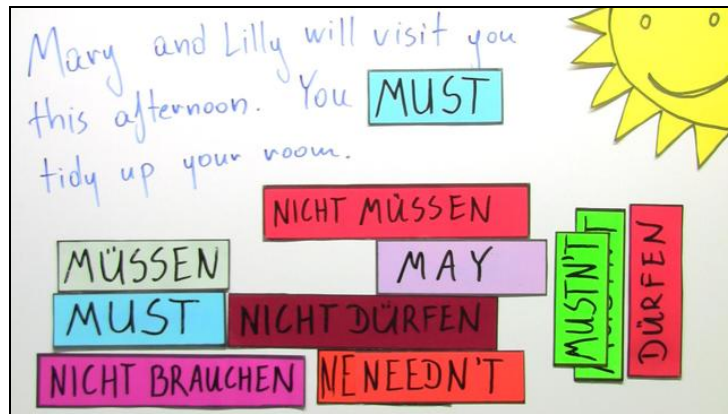 Mary and Lilly will visit you
this afternoon. You MUST
tidy up your room.
NICHT MÜSSEN
MÜSSEN
MAY
MUST
NICHT DÜRFEN
NICHT BRAUCHEN
NEEDN'T
MUSTN'T
DÜRFEN